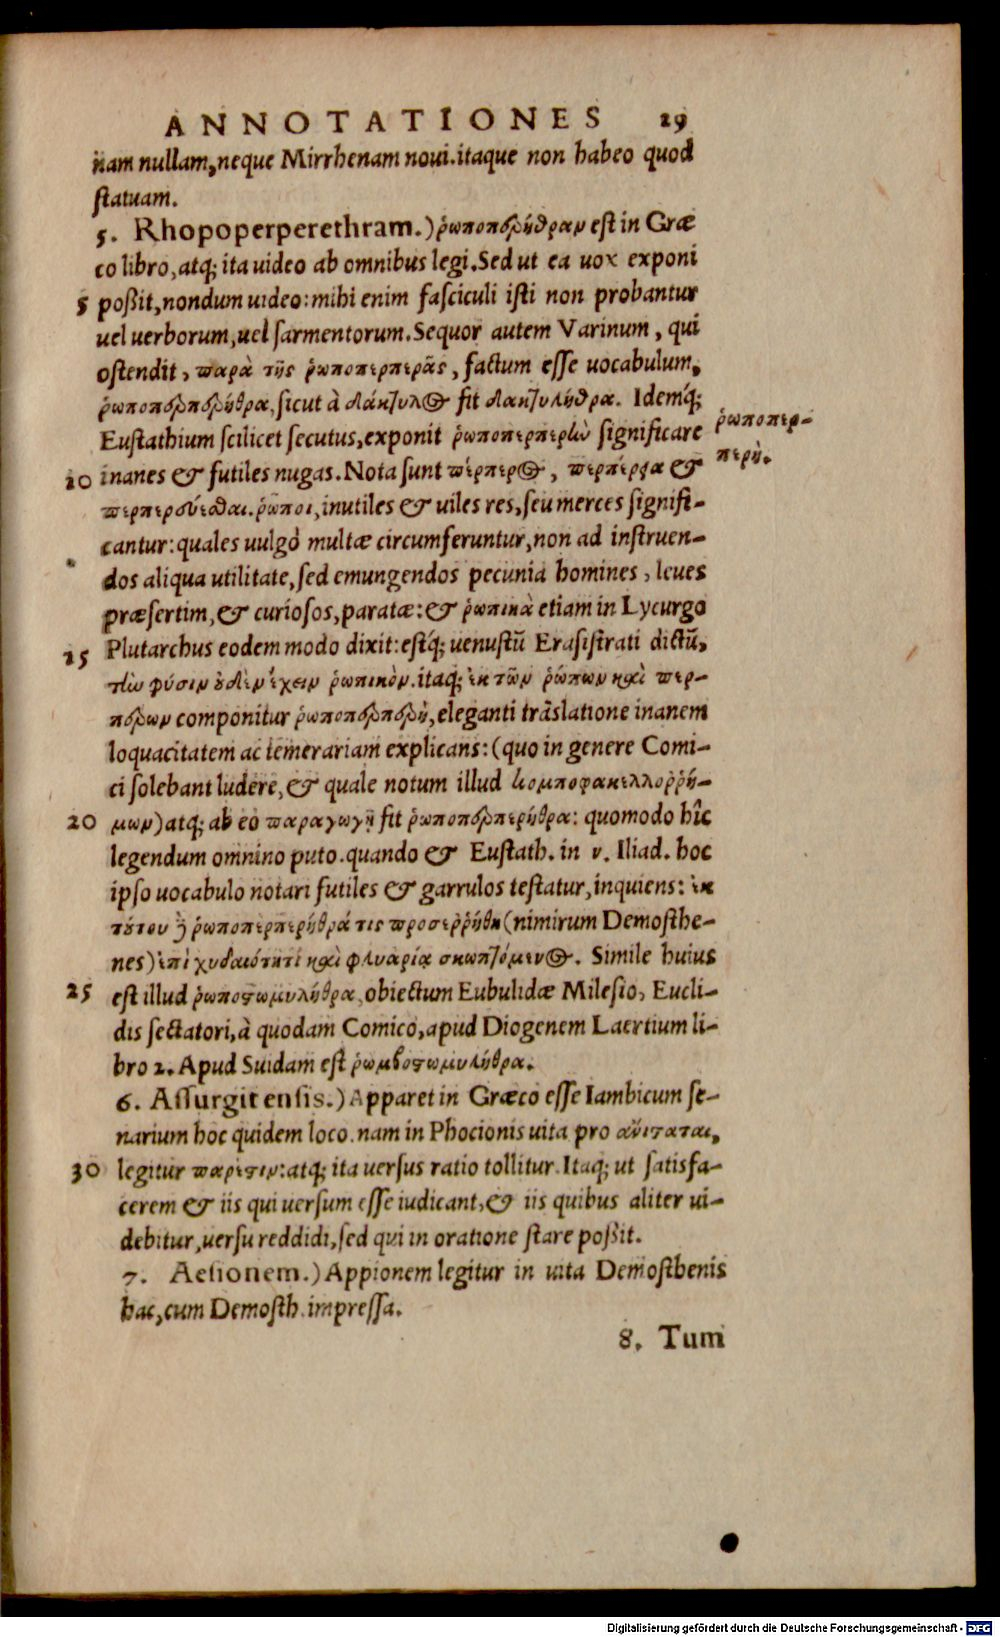 ANNOTATIONES 29
nam nullam, neque Mirrhenam noui. itaque non habeo quod
statuam.
5. Rhopoperperethram.) ῥωποπερπερήθραν est in Græ
co libro, atq; ita uideo ab omnibus legi. Sed ut ea uox exponi
5 poßit, nondum uideo: mihi enim fasciculi isti non probantur
uel uerborum, uel sarmentorum. Sequor autem Varinum, qui
ostendit, παρὰ τῆς ῥωποπερπερᾶς, factum esse uocabulum,
ῥωποπερπερήθρα, sicut à δάκτυλος fit δακτυλήθρα. Idemq́;
Eustathium scilicet secutus, exponit ῥωποπερπερὴν significare
ῥωποπερ-
περὴ.
10 inanes & futiles nugas. Nota sunt πέρπερος, περπέρεια &
περπερεύεσθαι. ῥῶποι, inutiles & uiles res, seu merces signifi-
cantur: quales uulgò multæ circumferuntur, non ad instruen-
dos aliqua utilitate, sed emungendos pecunia homines, leues
præsertim, & curiosos, paratæ: & ῥωπικὰ etiam in Lycurgo
15 Plutarchus eodem modo dixit: estq́; uenustũ Erasistrati dictũ,
τὴν φύσιν οὐδὲν ἔχειν ῥωπικὸν. itaq; ἐκ τῶν ῥώπων καὶ περ-
πέρων componitur ῥωποπερπερὴ, eleganti trãslatione inanem
loquacitatem ac temerariam explicans: (quo in genere Comi-
ci solebant ludere, & quale notum illud κομποφακελλοῤῥή-
20 μων) atq; ab eo παραγωγῇ fit ῥωποπερπερήθρα: quomodo hîc
legendum omnino puto. quando & Eustath. in ν. Iliad. hoc
ipso uocabulo notari futiles & garrulos testatur, inquiens: ἐκ
τούτου ἢ ῥωποπερπερήθρά τις προσεῤῥήθη (nimirum Demosthe-
nes) ἐπὶ χυδαιότητι καὶ φλυαρίᾳ σκωπτόμενος. Simile huius
25 est illud ῥωποστωμυλήθρα, obiectum Eubulidæ Milesio, Eucli-
dis sectatori, à quodam Comico, apud Diogenem Laertium li-
bro 2. Apud Suidam est ῥωμβοστωμυλήθρα.
6. Assurgit ensis.) Apparet in Græco esse Iambicum se-
narium hoc quidem loco. nam in Phocionis uita pro ἀνίσταται,
30 legitur πάρεστιν: atq; ita uersus ratio tollitur. Itaq; ut satisfa-
cerem & iis qui uersum esse iudicant, & iis quibus aliter ui-
debitur, uersu reddidi, sed qui in oratione stare poßit.
7. Aesionem.) Appionem legitur in uita Demosthenis
hac, cum Demosth. impressa.
8. Tum
Digitalisierung gefördert durch die Deutsche Forschungsgemeinschaft - DFG